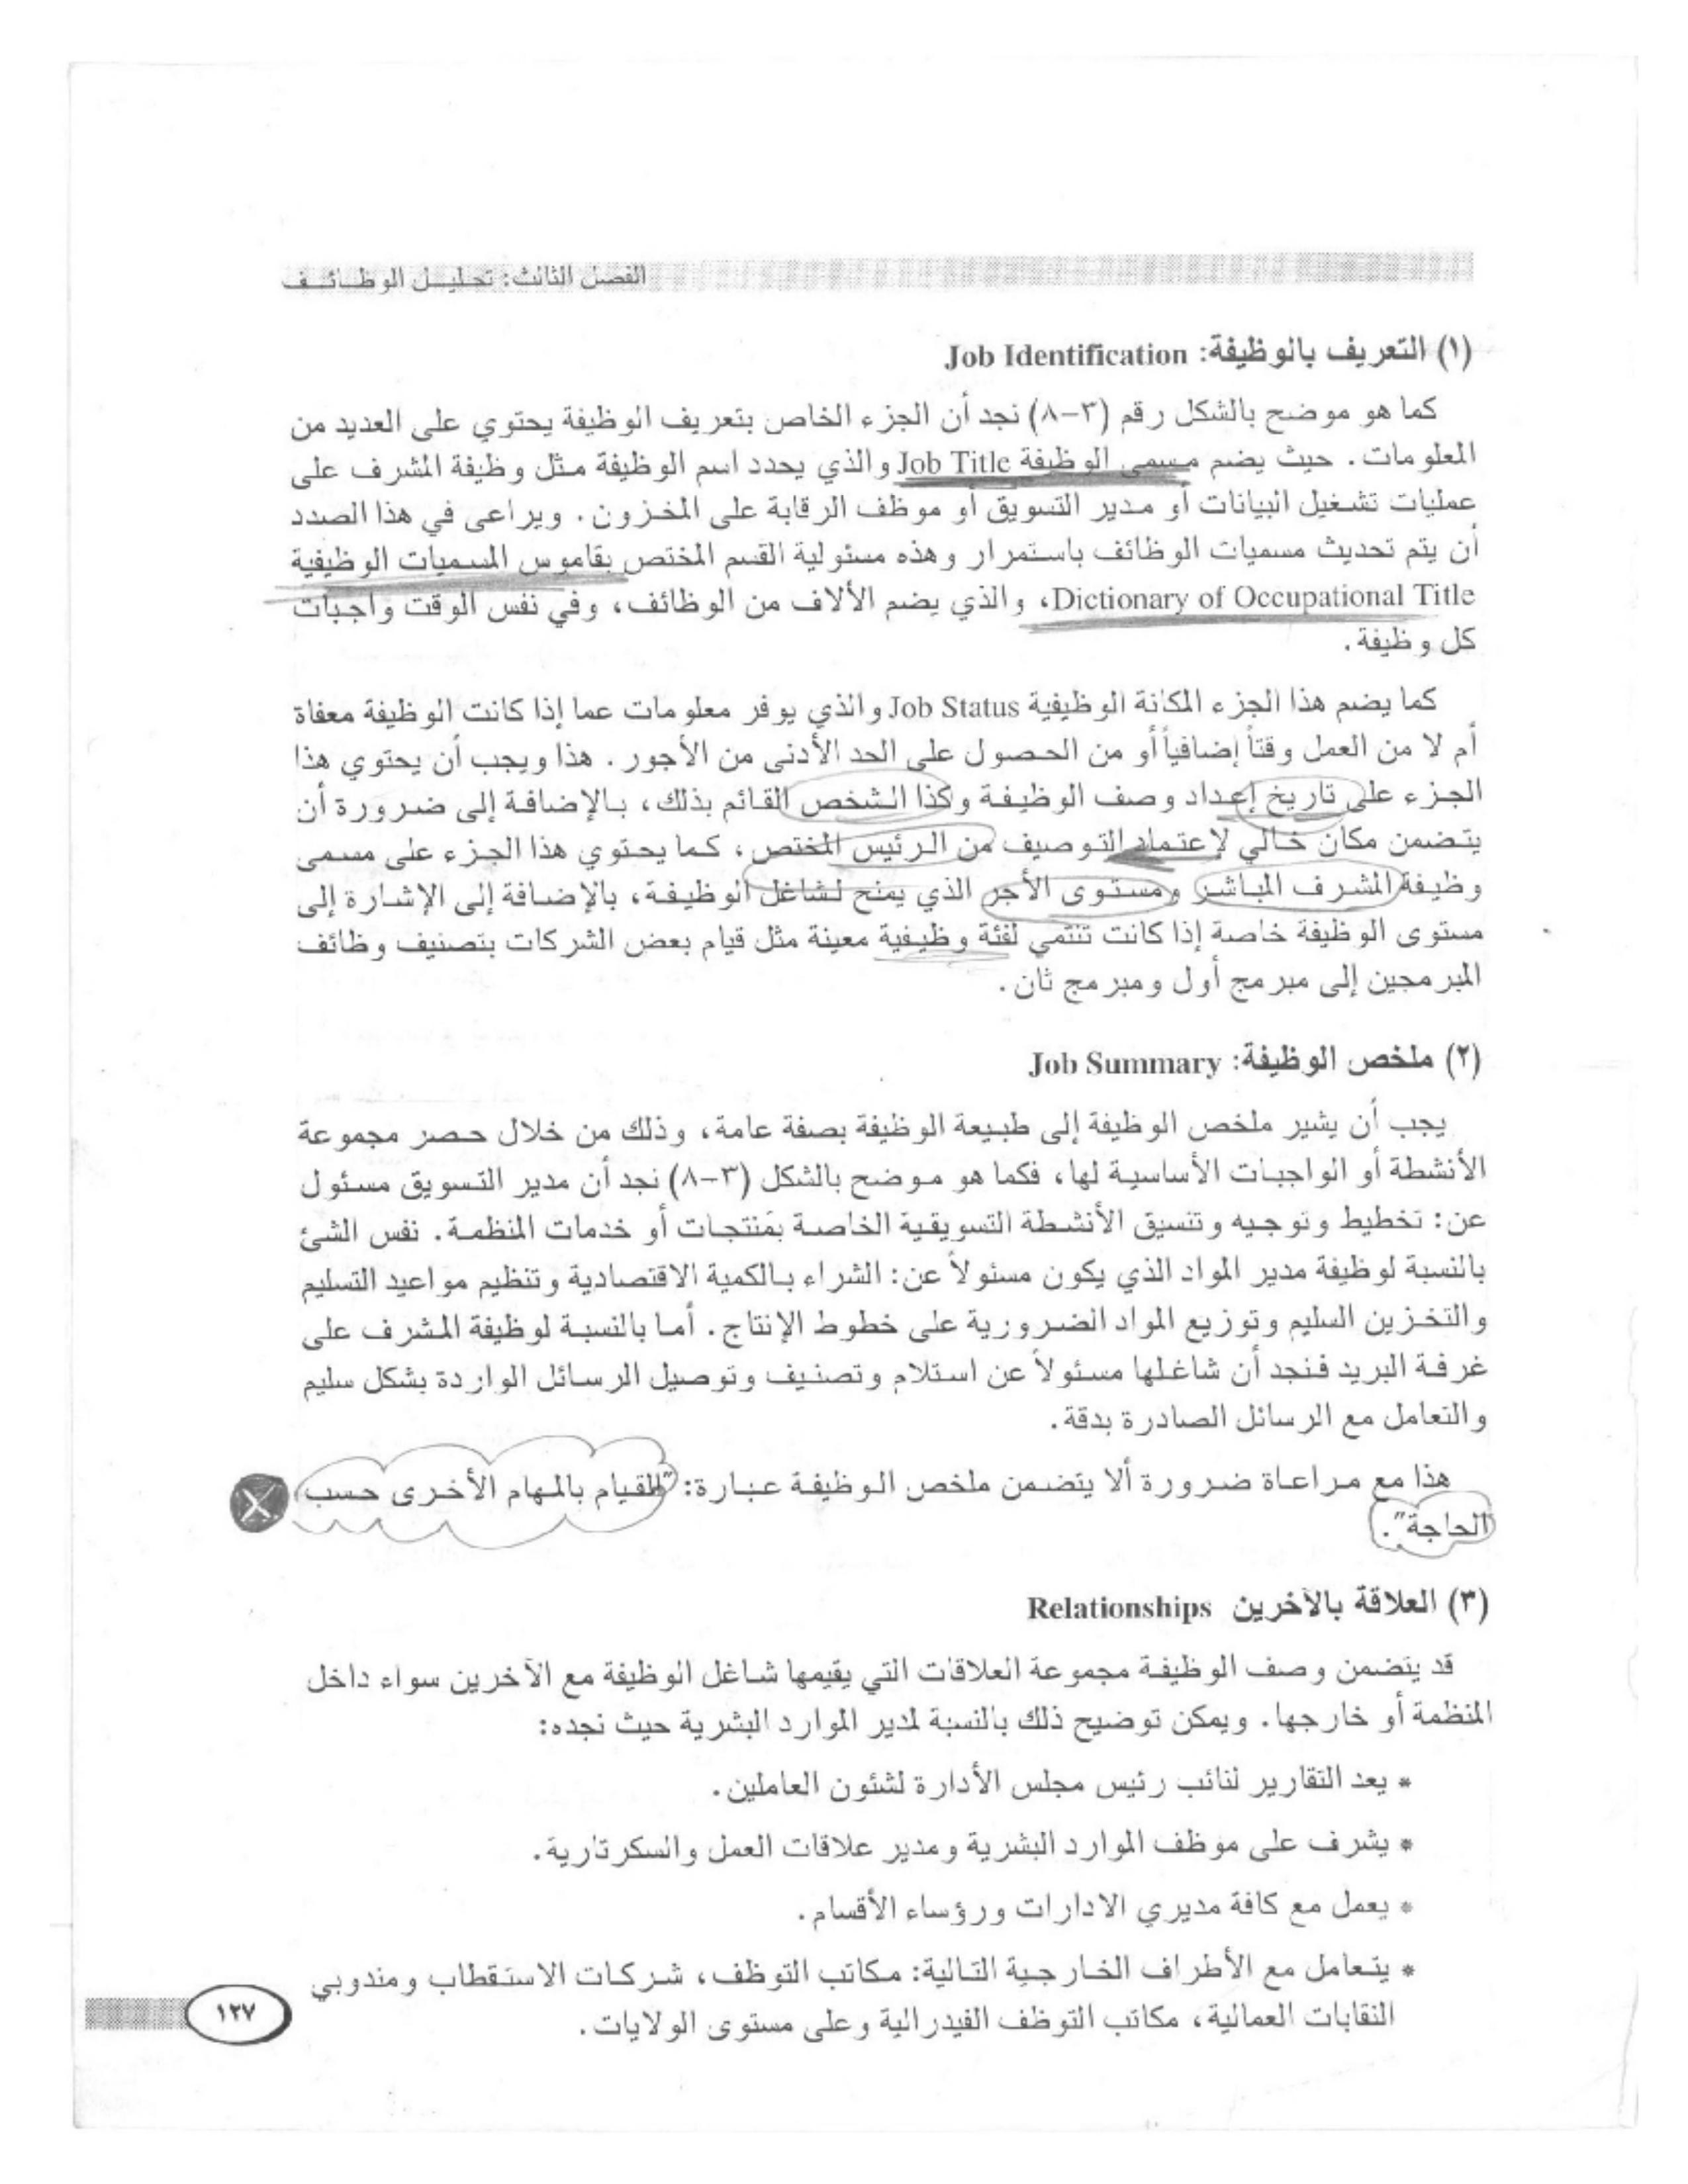 الفصل الثالث: تحليل الوظائف
(١) التعريف بالوظيفة: Job Identification
كما هو موضح بالشكل رقم (٣-٨) نجد أن الجزء الخاص بتعريف الوظيفة يحتوي على العديد من
المعلومات. حيث يضم مسمى الوظيفة Job Title والذي يحدد اسم الوظيفة مثل وظيفة المشرف على
عمليات تشغيل البيانات أو مدير التسويق أو موظف الرقابة على المخزون. ويراعى في هذا الصدد
أن يتم تحديث مسميات الوظائف باستمرار وهذه مسئولية القسم المختص بقاموس المسميات الوظيفية
Dictionary of Occupational Title، والذي يضم الألاف من الوظائف، وفي نفس الوقت واجبات
كل وظيفة.
كما يضم هذا الجزء المكانة الوظيفية Job Status والذي يوفر معلومات عما إذا كانت الوظيفة معفاة
أم لا من العمل وقتاً إضافياً أو من الحصول على الحد الأدنى من الأجور. هذا ويجب أن يحتوي هذا
الجزء على تاريخ إعداد وصف الوظيفة وكذا الشخص القائم بذلك، بالإضافة إلى ضرورة أن
يتضمن مكان خالي لإعتماد التوصيف من الرئيس المختص، كما يحتوي هذا الجزء على مسمى
وظيفة المشرف المباشر ومستوى الأجر الذي يمنح لشاغل الوظيفة، بالإضافة إلى الإشارة إلى
مستوى الوظيفة خاصة إذا كانت تنتمي لفئة وظيفية معينة مثل قيام بعض الشركات بتصنيف وظائف
المبرمجين إلى مبرمج أول ومبرمج ثان.
(٢) ملخص الوظيفة: Job Summary
يجب أن يشير ملخص الوظيفة إلى طبيعة الوظيفة بصفة عامة، وذلك من خلال حصر مجموعة
الأنشطة أو الواجبات الأساسية لها، فكما هو موضح بالشكل (٣-٨) نجد أن مدير التسويق مسئول
عن: تخطيط وتوجيه وتنسيق الأنشطة التسويقية الخاصة بمنتجات أو خدمات المنظمة. نفس الشئ
بالنسبة لوظيفة مدير المواد الذي يكون مسئولاً عن: الشراء بالكمية الاقتصادية وتنظيم مواعيد التسليم
والتخزين السليم وتوزيع المواد الضرورية على خطوط الإنتاج. أما بالنسبة لوظيفة المشرف على
غرفة البريد فنجد أن شاغلها مسئولاً عن استلام وتصنيف وتوصيل الرسائل الواردة بشكل سليم
والتعامل مع الرسائل الصادرة بدقة.
هذا مع مراعاة ضرورة ألا يتضمن ملخص الوظيفة عبارة: "القيام بالمهام الأخرى حسب
الحاجة".
(٣) العلاقة بالآخرين Relationships
قد يتضمن وصف الوظيفة مجموعة العلاقات التي يقيمها شاغل الوظيفة مع الآخرين سواء داخل
المنظمة أو خارجها. ويمكن توضيح ذلك بالنسبة لمدير الموارد البشرية حيث نجده:
* يعد التقارير لنائب رئيس مجلس الأدارة لشئون العاملين.
* يشرف على موظف الموارد البشرية ومدير علاقات العمل والسكرتارية.
* يعمل مع كافة مديري الادارات ورؤساء الأقسام.
* يتعامل مع الأطراف الخارجية التالية: مكاتب التوظف، شركات الاستقطاب ومندوبي
النقابات العمالية، مكاتب التوظف الفيدرالية وعلى مستوى الولايات.
١٢٧